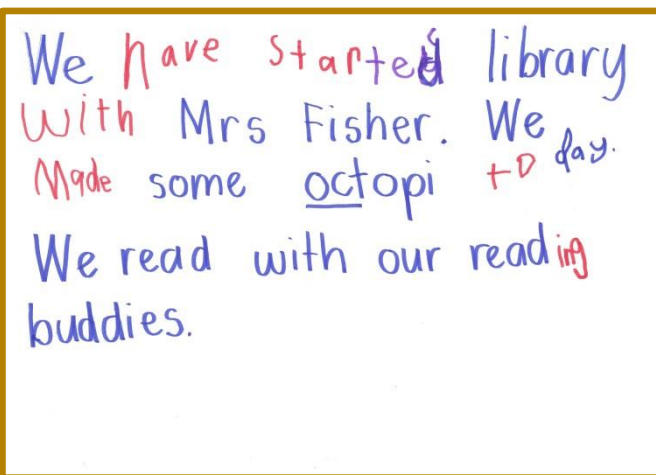 We have started library
With Mrs Fisher. We
Made some octopi to day.
We read with our reading
buddies.